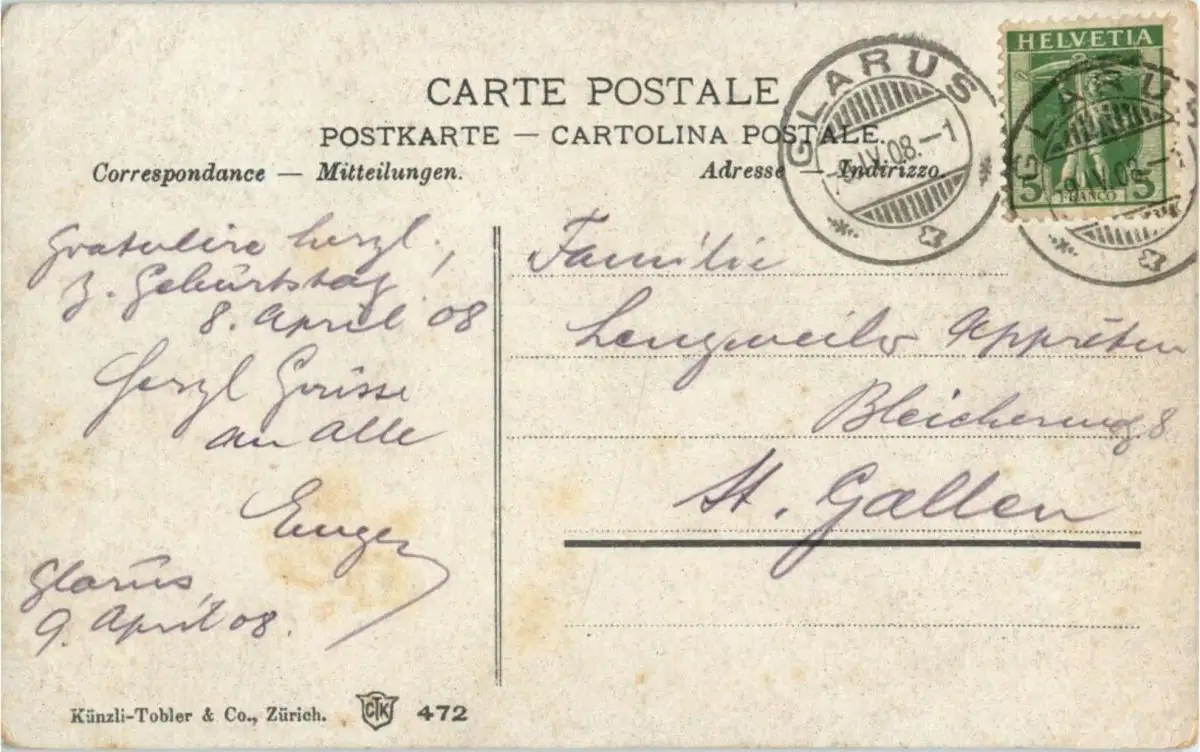 CARTE POSTALE
POSTKARTE — CARTOLINA POSTALE.
Correspondance — Mitteilungen.
Adresse — Indirizzo.
HELVETIA
5 FRANCO 5
GLARUS
9.IV.08.-1
GLARUS
9.IV.08.-
Gratulire herzl.,
z. Geburtstag
8. April 08
Herzl Grüsse
an Alle
Eugen
Glarus,
9. April 08.
Familie
Lengweiler
St. Gallen
Künzli-Tobler & Co., Zürich.
CTK
472